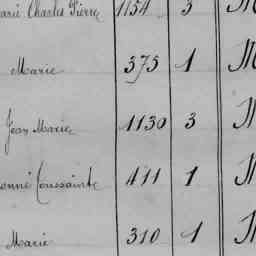 arie Charles Pierre 1154 3 M
Marie 375 1 M
Jean Marie 1130 3 M
Toussainte 411 1 M
Marie 310 1 M